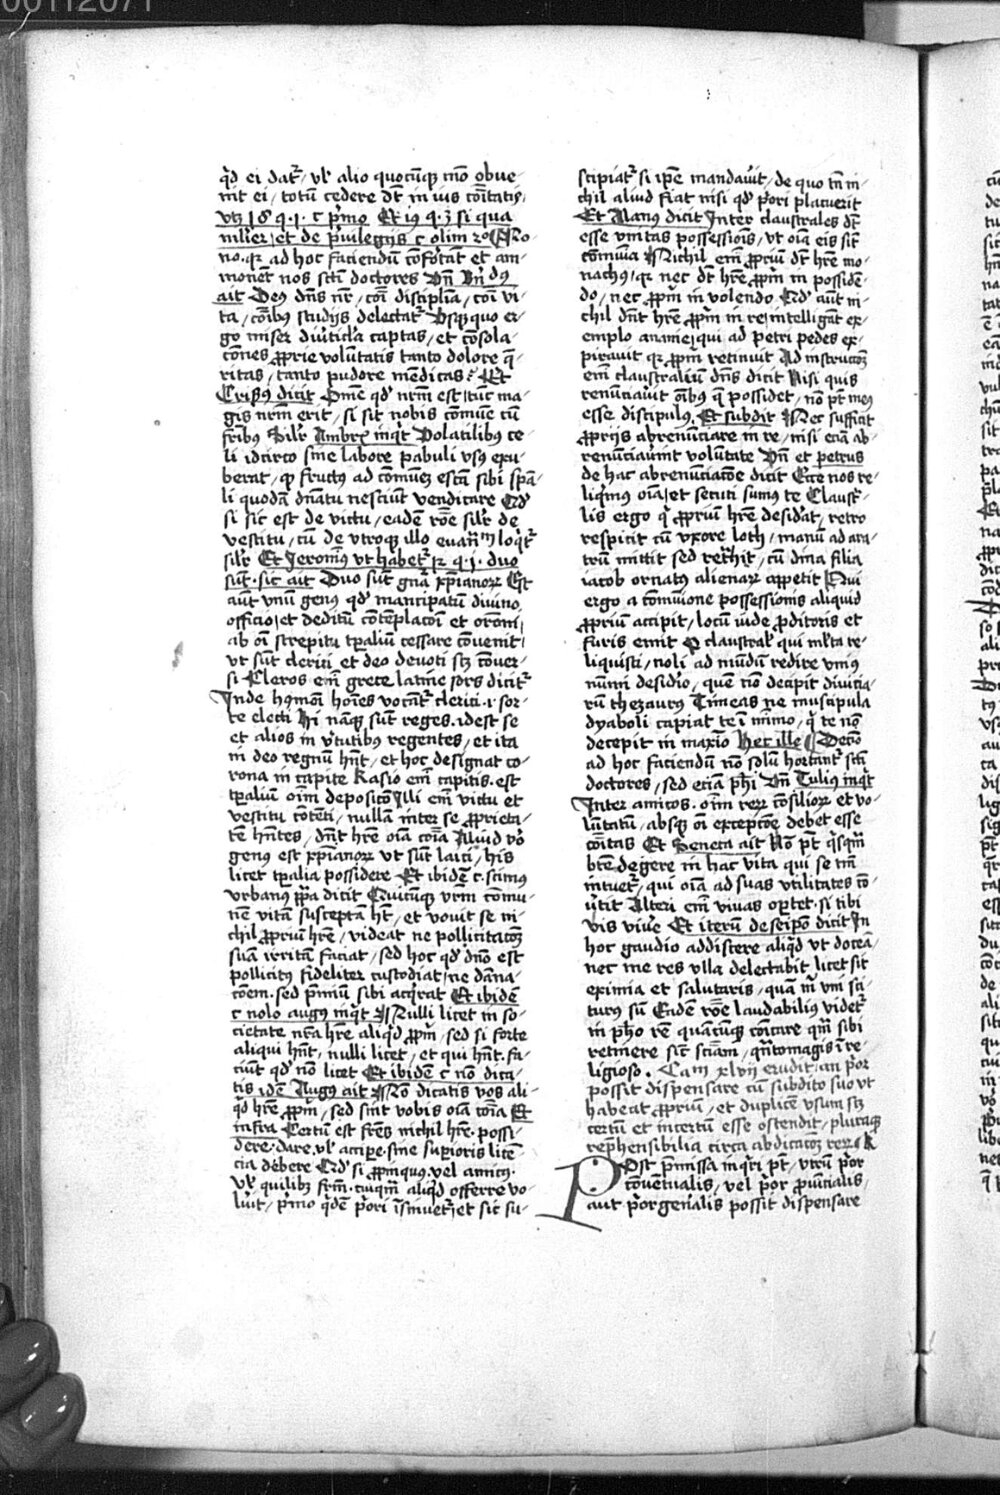 00112071
qd ei datr / vl alio quocūqȝ mō obue-
nit ei / totū cedere dt in ius cōitatis
vtȝ 18 q. 1. c pmo Et 19 q. 3 si qua
mlier / et de pͥuilegijs c olim 2o No-
no. qꝛ ad hoc faciendū cōfortāt et am-
monēt nos scti doctores
ait Deꝰ dns nr / coi disciplīa / coi vi-
ta / coibꝰ studijs delectat Vsqȝ quo er-
go miser diuticla captas / et cōsola-
cōnes ꝓprie volūtatis tanto dolore q̄-
ritas / tanto pudore mēdicas? Et
Crisꝰ dicit Omē qd nrm est / tūc ma-
gis nrm erit / si sit nobis cōmūe cū
fribꝰ Silr Ambrꝰ inqt Volatilibꝰ ce-
li idcirco sine labore pabuli vsꝰ exu-
berat / qꝫ fructꝰ ad cōmūez escā sibi
li quodā dnatu nesciūt vendicare Qd
si sic est de victu / eadē roē silr de
vestitu / cū de vtroqȝ illo euangͫ loqtr
silr Et Jeronimꝰ vt habetr 12 q. 1. duo
sūt. sic ait Duo sūt gn̄a xpianorꝝ Est
aut vnū genꝰ qd mancipatū diuino
officio / et deditū cōtēplacoī et oroni /
ab oī strepitu tpaliū cessare cōuenit /
vt sūt clerici et deo deuoti scȝ cōuer-
si Cleros em grece latine sors dicitr
Inde hmoī hoies vocātr clerici. i. sor-
te electi Hi nāqȝ sūt reges. idest se
et alios in vͥtutibꝰ regentes / et ita
in deo regnū hnt / et hoc designat co-
rona in capite Rasio em capitis. est
tpaliū oīm deposicō Illi em victu et
vestitu cōtēti / nullā inter se ꝓprieta-
tē hntes / dnt hre oīa coīa Aliud vo
genꝰ est xpianorꝝ vt sūt laici / his
licet tpalia possidere Et ibidē c. scimus
vrbanꝰ ppa dicit Quicūqȝ vrm cōmu-
nē vitā susceptā ht / et vouit se ni-
chil ꝓpriū hre / videat ne pollicitacōȝ
suā irritā faciat / sed hoc qd dno est
pollicitꝰ fideliter custodiat / ne dāna-
coem. sed pͥmiū sibi acqrat Et ibidē
c nolo augꝰ inqt Nulli licet in so-
cietate nra hre aliqd ꝓpm / sed si forte
aliqui hnt / nulli licet / et qui hnt. fa-
ciūt qd nō licet Et ibidē c nō dica-
tis idē Augꝰ ait Nō dicatis vos ali-
qd hre ꝓpm / sed sint vobis oīa coīa Et
infra Certū est fres nichil hre. possi-
dere. dare. vl accipe. sine supioris licē-
cia debere Qd si ꝓpinquꝰ. vel amicꝰ.
vl quilibꝫ frm. cuiqm aliqd offerre vo-
luit / pmo qdē pori īsinuetr / et sic su-
scipiatr si ipe mandauit / de quo tn ni-
chil aliud fiat nisi qd pori placuerit
Et Alanꝰ dicit Inter claustrales dt
esse vnitas possessiois / vt oīa eis sīt
cōmunia Nichil em ꝓpriū dt hre mo-
nachꝰ / qꝛ nec dt hre ꝓpm in possidē-
do / nec ꝓpm in volendo Qd aut ni-
chil dnt hre ꝓpm in re / intelligāt ex-
emplo ananie / qui ad petri pedes ex-
pirauit qꝛ ꝓpm retinuit Ad instruccōȝ
em claustraliū dns dicit Nisi quis
renūciauit oibꝰ q̄ possidet / nō pt meꝰ
esse discipulꝰ. Et subdit Nec sufficit
ꝓprijs abrenūciare in re / nisi eciā ab-
renūciauint volūtate Vn et petrus
de hac abrenūciacōe dicit Ecce nos re-
liqͥmus oīa / et secuti sumꝰ te Claust-
lis ergo qͥ ꝓpriū hre desidat / retro
respicit cū vxore loth / manū ad ara-
trū mittit sed retͣhit / cū dina filia
iacob ornatꝰ alienarꝝ appetit Qui
ergo a comuione possessionis aliquid
ꝓpriū accipit / locū iude ꝓditoris et
furis emit O claustral qui mlta re-
liquisti / noli ad mūdū redire vniꝰ
nūmi desidio / quē nō decipit diuicia-
rū thezaurꝰ Timeas ne muscipula
dyaboli capiat te ī mimo / qͥ te nō
decepit in maxio Hec ille Decio
ad hoc faciendū nō solū hortantr scti
doctores / sed eciā phi Vn Tuliꝰ inqt
Inter amicos. oīm rerꝝ cōsiliorꝝ et vo-
lūtatū / absqȝ oī excepcōe debet esse
coitas Et Seneca ait Nō pt qͥsqͣm
btē degere in hac vita qui se tm
intuetr / qui oīa ad suas vtilitates cō-
uͥtit Alteri em viuas oꝑtet. si tibi
vis viuͤ Et iterū de seipō dicit In
hoc gaudio addiscere aliqd vt doceā /
nec me res vlla delectabit licet sit
eximia et salutaris / quā mͥ vni sci-
turꝰ sū Eadē roē laudabiliꝰ videtr
in pho rē quācūqȝ cōicare qͣm sibi
retinere sīt sciam / qnto magis ī re-
ligioso. Cam xlvij erudit / an pͥor
possit dispensare cū subdito suo vt
habeat ꝓpriū / et duplicē vsum scȝ
certū et incertū esse ostendit / pluraqȝ
rephensibilia circa abdicacōȝ rerꝝ R
Post pͥmissa inqri pt / vtrū pͥor
cōuētualis / vel pͥor ꝓuīcialis /
aut pͥor genͥalis possit dispensare